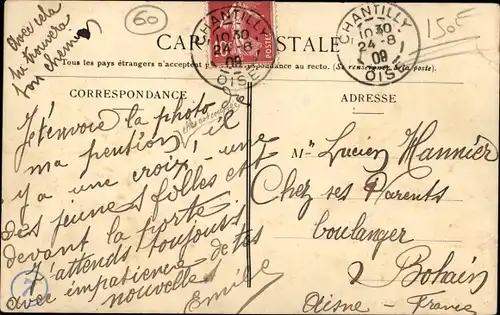 Avec cela
tu trouvera
ton chemin
60
150F
CHANTILLY
10 30
24-8
09
OISE
CHANTILLY
10 30
24-8
09
OISE
CARTE POSTALE
Tous les pays étrangers n'acceptent pas la correspondance au recto. (Se renseigner à la poste).
CORRESPONDANCE
ADRESSE
Je t'envoie la photo de
ma pention, il
y a une croix, une
des jeunes filles est
devant la porte.
J'attends toujours
avec impatience de tes
nouvelles
Emile
Mr Lucien Mannier
Chez ses Parents
boulanger
à Bohain
Aisne - France